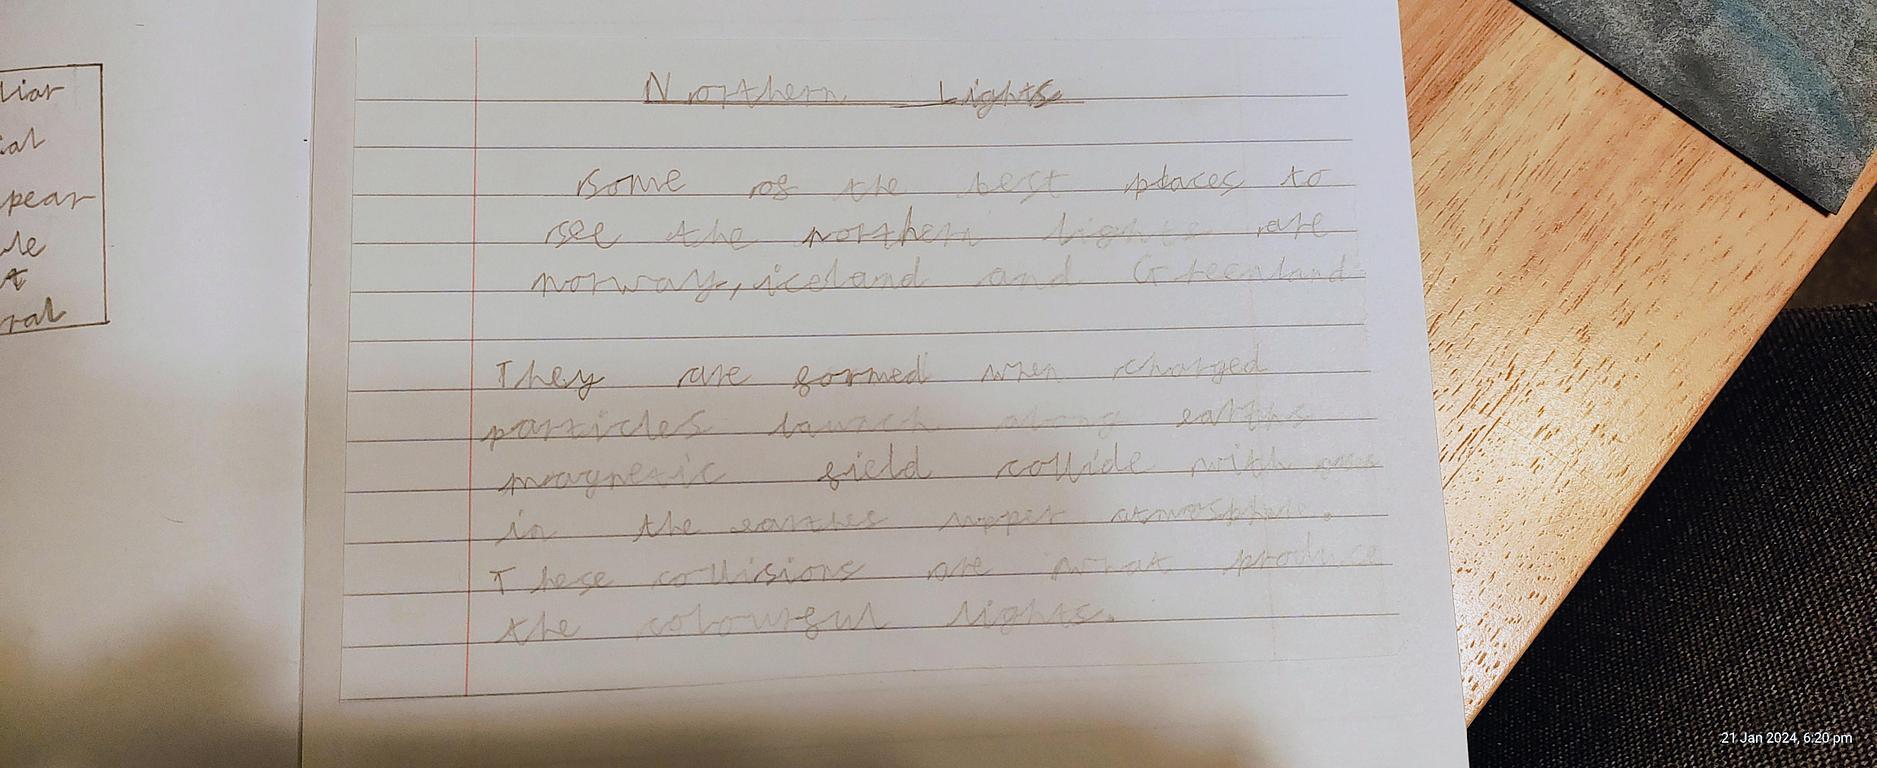 liar
ial
pear
ule
t
ral
Northern Lights
some of the best places to
see the northern lights are
norway, iceland and Greenland
They are formed when charged
particles launch along earths
magnetic field collide with
in the earthes upper atmosphere.
These collisions are what produce
the colourful lights.
21 Jan 2024, 6:20 pm